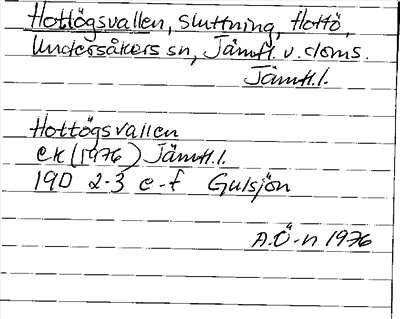 Hottögsvallen, sluttning, Hottö,
Undersåkers sn, Jämtl. v. doms.
Jämtl.l.
Hottögsvallen
ek (1976) Jämtl.l.
19D 2-3 e-f Gulsjön
A.Ö-n 1976